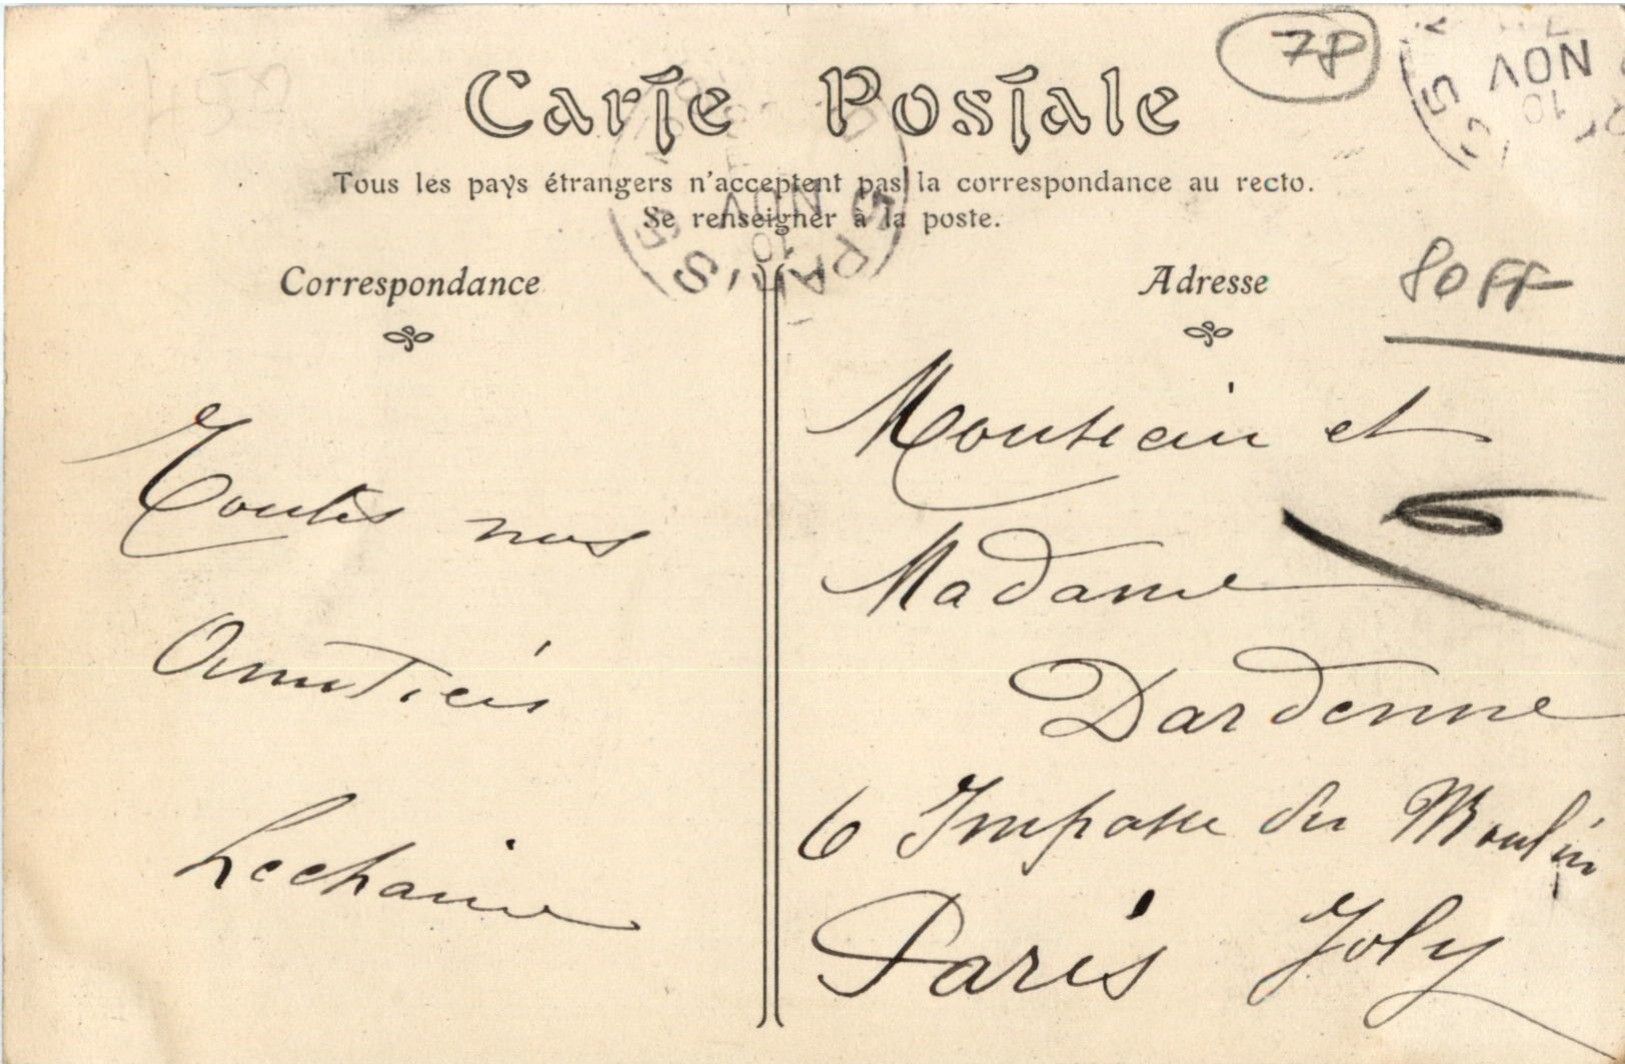 78
Carte Postale
NOV
10
5
Tous les pays étrangers n'acceptent pas la correspondance au recto.
Se renseigner à la poste.
NOV
10
PARIS
Correspondance
Adresse
80FF
Toutes nos
Amitiés
Lechaine
Monsieur et
Madame
Dardenne
6 Impasse du Moulin
Joly
Paris